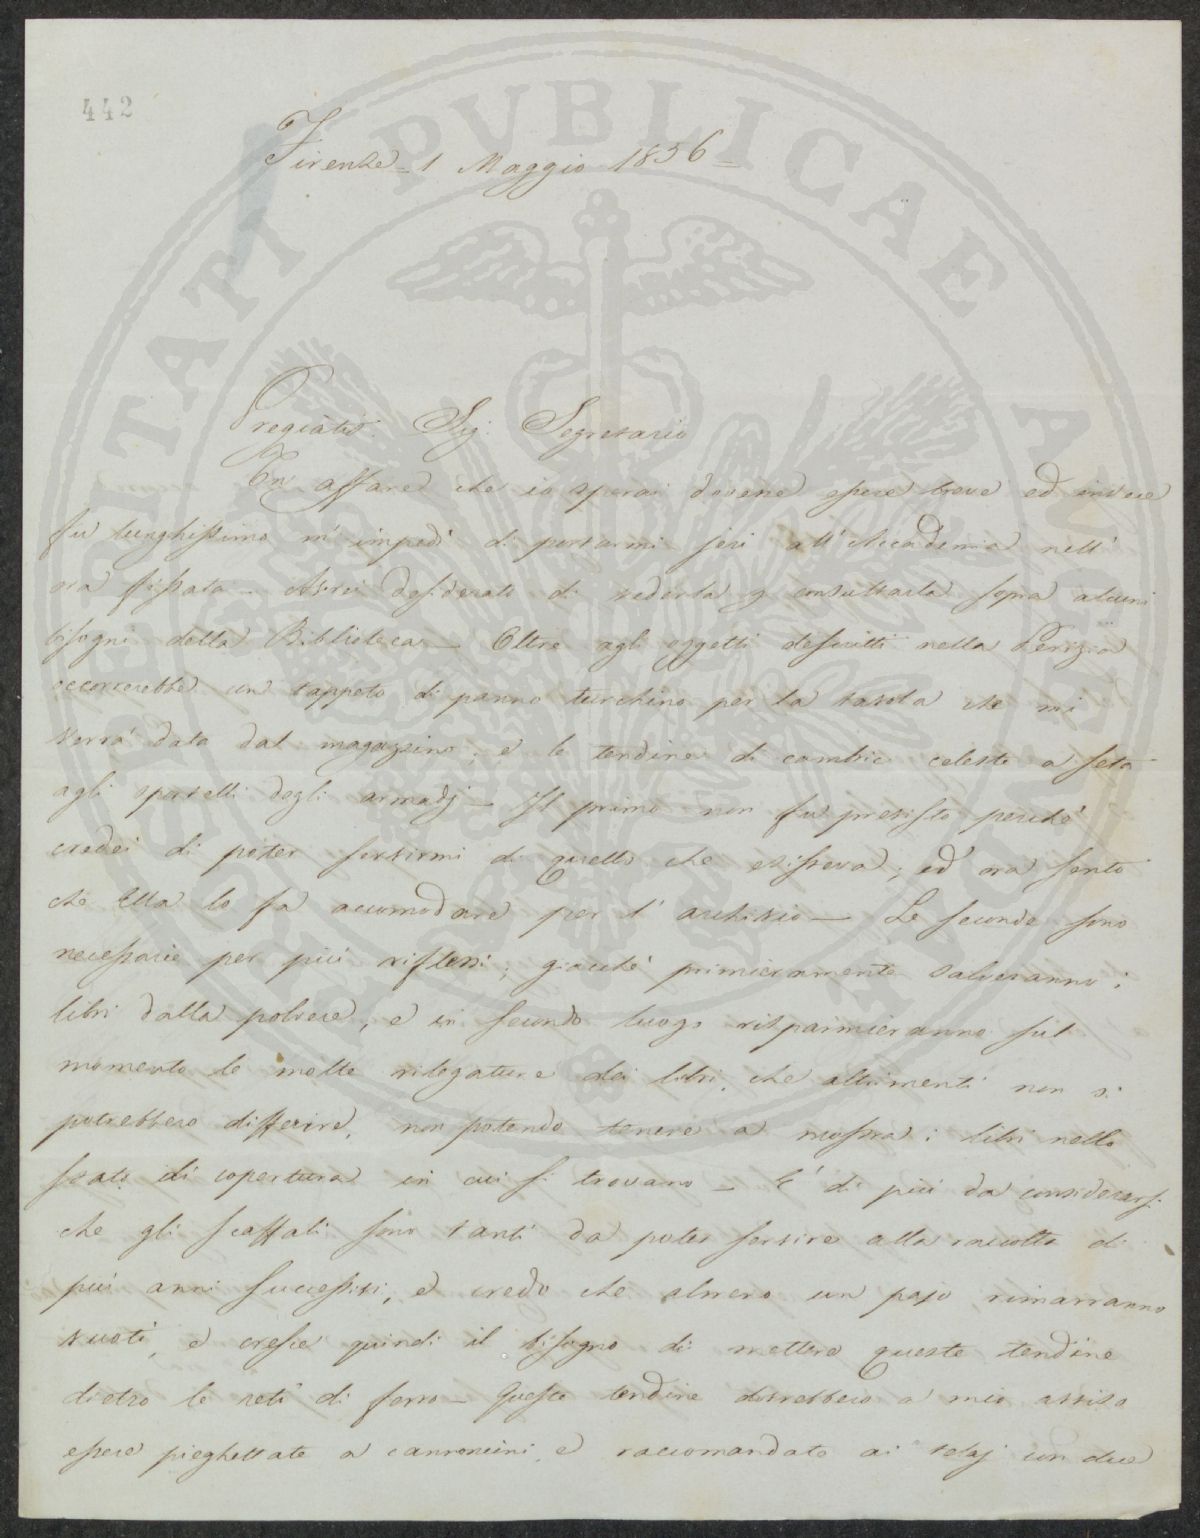 442
Firenze 1 Maggio 1856
Pregiatis. Sig. Segretario
Un affare che io sperai dovere essere breve ed invece
fu lunghissimo m'impedì di portarmi jeri all'Accademia nell'
ora fissata. Avrei desiderato di vederla p consultarla sopra alcuni
bisogni della Biblioteca — Oltre agli oggetti descritti nella Perizia
occorrerebbe un tappeto di panno turchino per la tavola che mi
verrà data dal magazzino; e le tendine di cambric celeste a seta
agli sportelli degli armadj — Il primo non fu previsto perché
credei di poter servirmi di quello che esisteva; ed ora sento
che Ella lo fa accomodare per l'archivio — Le seconde sono
necessarie per più riflessi; giacché primieramente salveranno i
libri dalla polvere, e in secondo luogo risparmieranno sul
momento le molte rilegature dei libri, che altrimenti non si
potrebbero differire, non potendo tenere a mostra i libri nello
stato di copertura in cui si trovano — E' di più da considerarsi
che gli scaffali sono tanti da poter servire alla raccolta di
più anni successivi, e credo che almeno un pajo rimarranno
vuoti, e cresce quindi il bisogno di mettere queste tendine
dietro le reti di ferro — Queste tendine dovrebbero a mio avviso
essere pieghettate a cannoncini e raccomandate ai telaj con due
SPERITATI PVBLICAE AVGENDAE